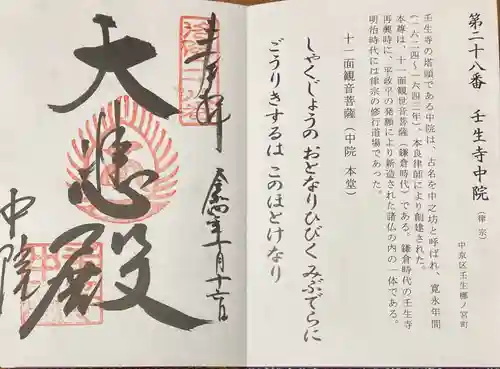 第二十八番　壬生寺中院（律宗）
中京区壬生梛ノ宮町
壬生寺の塔頭である中院は、古名を中之坊と呼ばれ、寛永年間
（一六二四～一六四三年）、本良律師により創建された。
本尊は、十一面観世音菩薩（鎌倉時代）である。鎌倉時代の壬生寺
再興時に、平政平の発願により新造された諸仏の内の一体である。
明治時代には律宗の修行道場であった。
十一面観音菩薩（中院　本堂）
しゃくじょうの　おとなりひびく　みぶでらに
ごうりきするは　このほとけなり
奉拝
大悲殿
中院